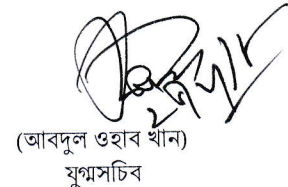 (আবদুল ওহাব খান)
যুগ্মসচিব